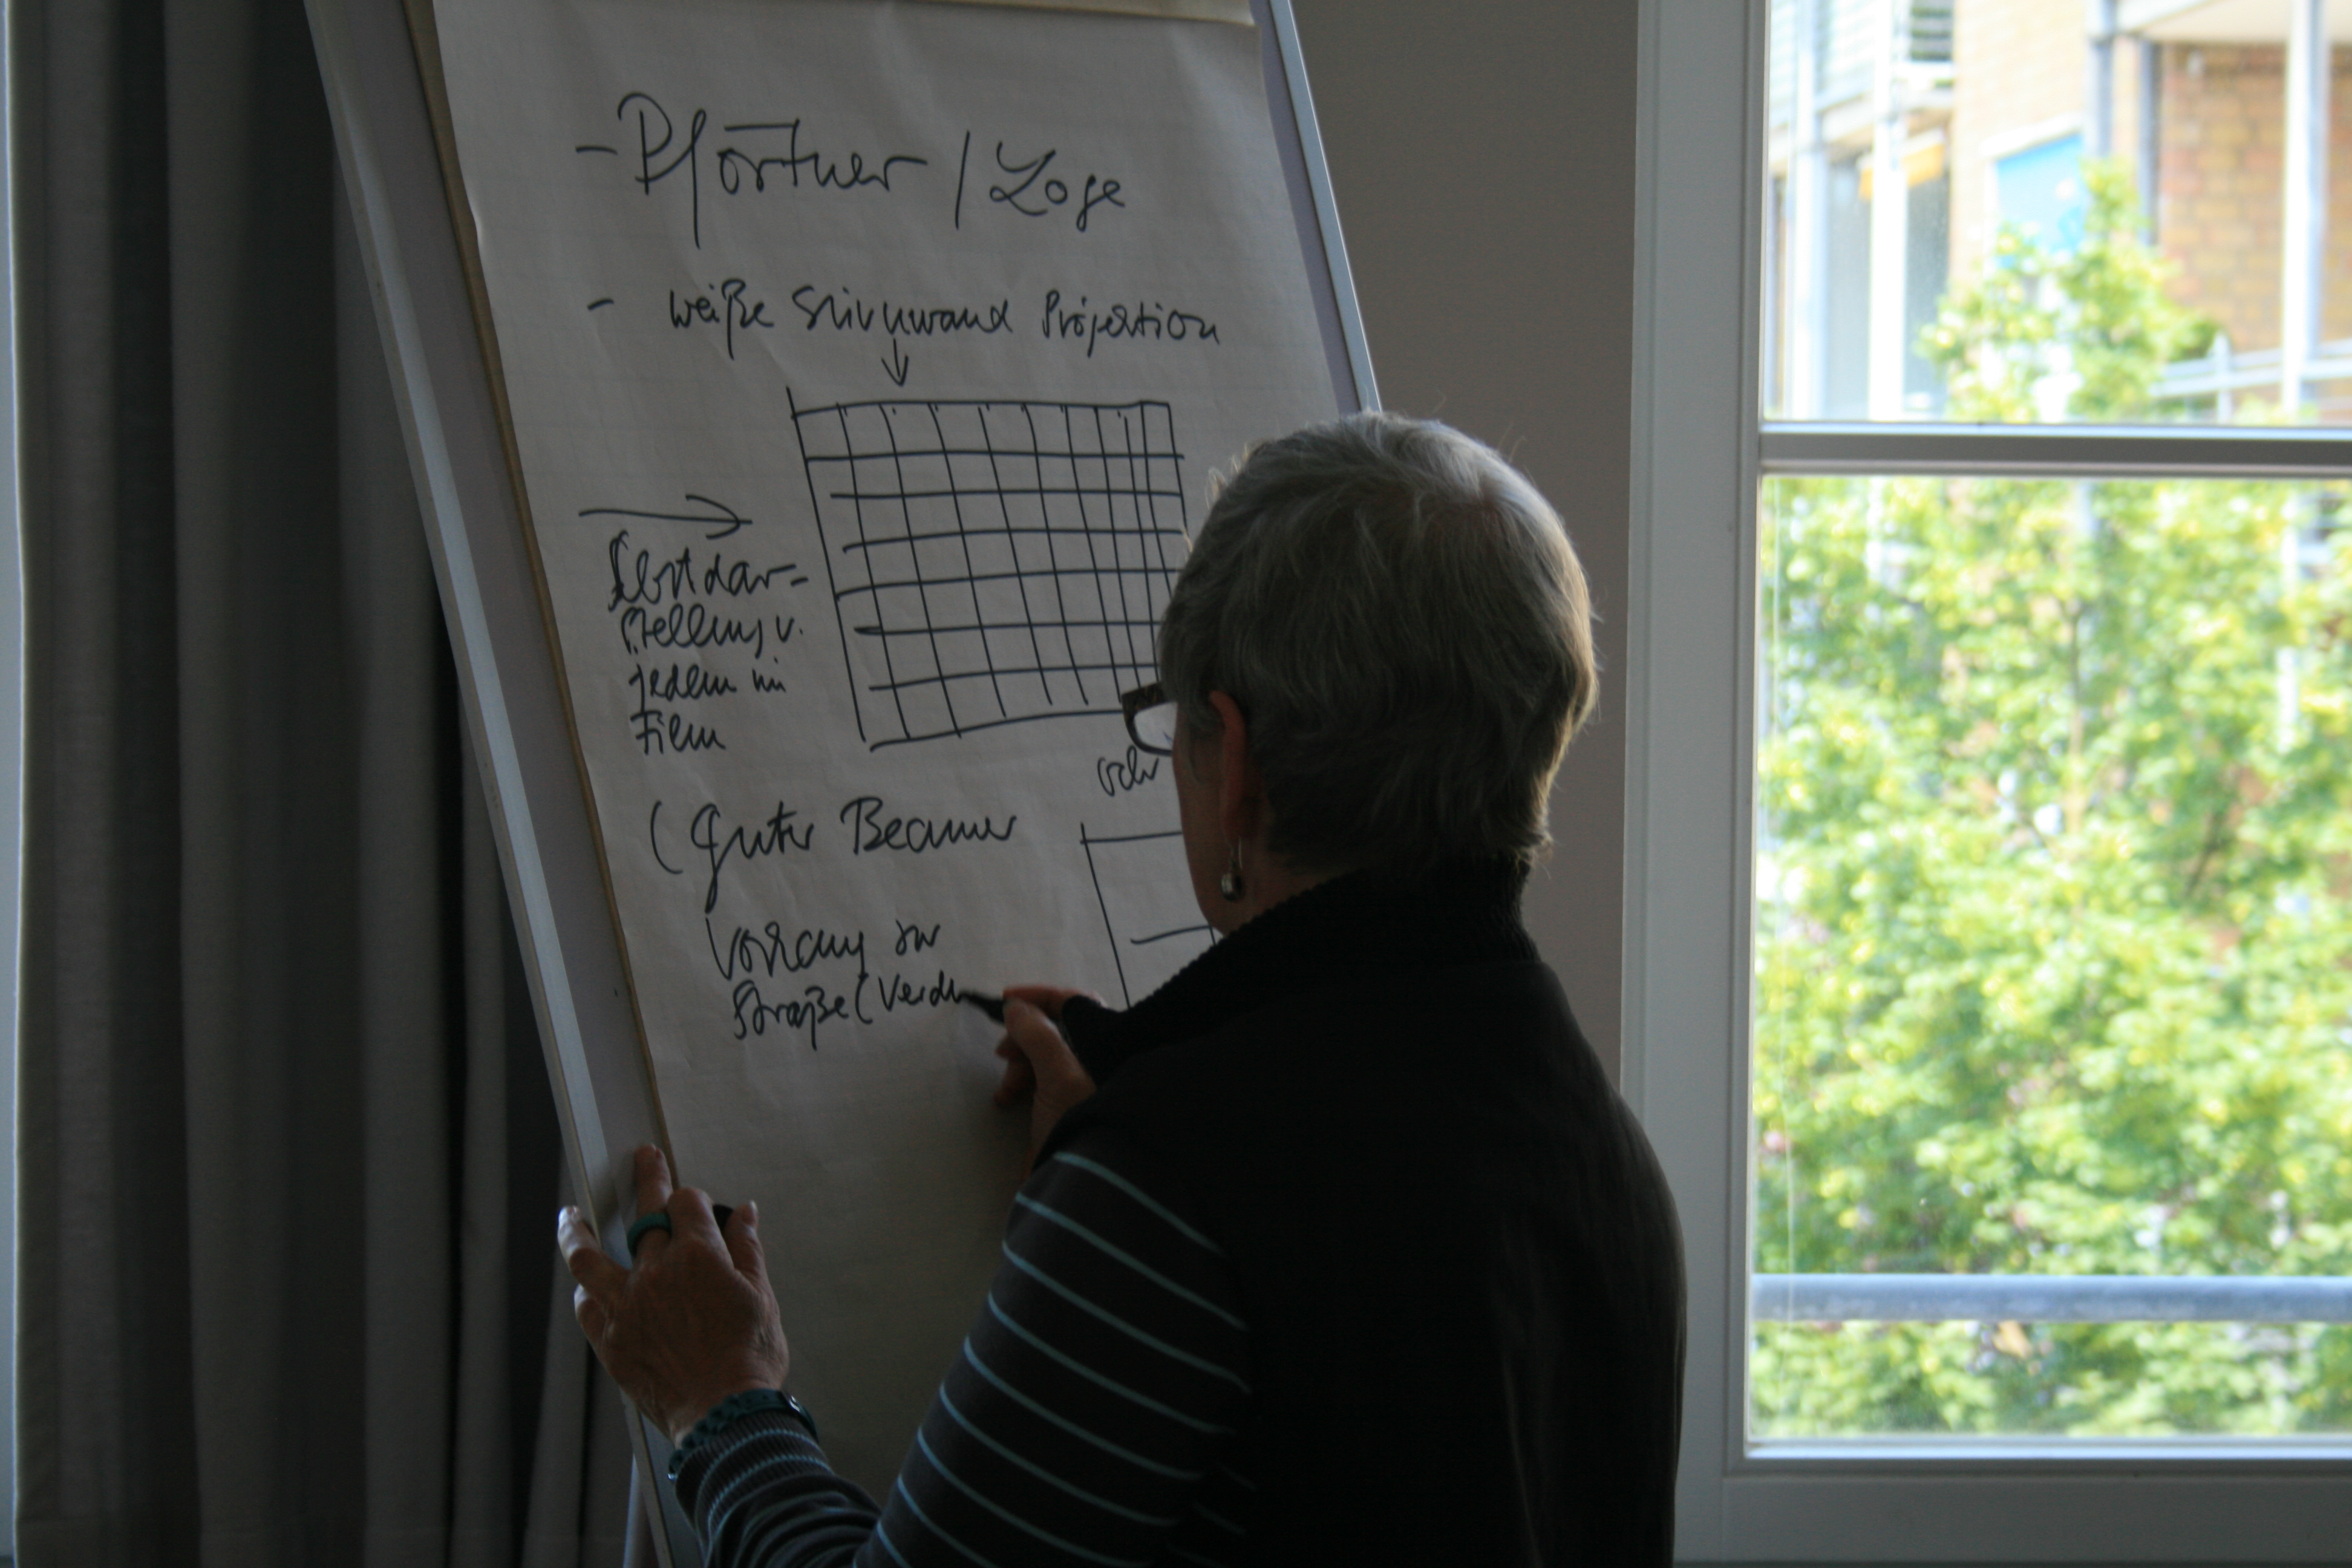 - Pförtner / Loge
- weiße Stirnwand Projektion
Selbstdar-
stellung v.
jedem im
Film
oder
( guter Beamer
Vorhang zur
Straße (Verdu